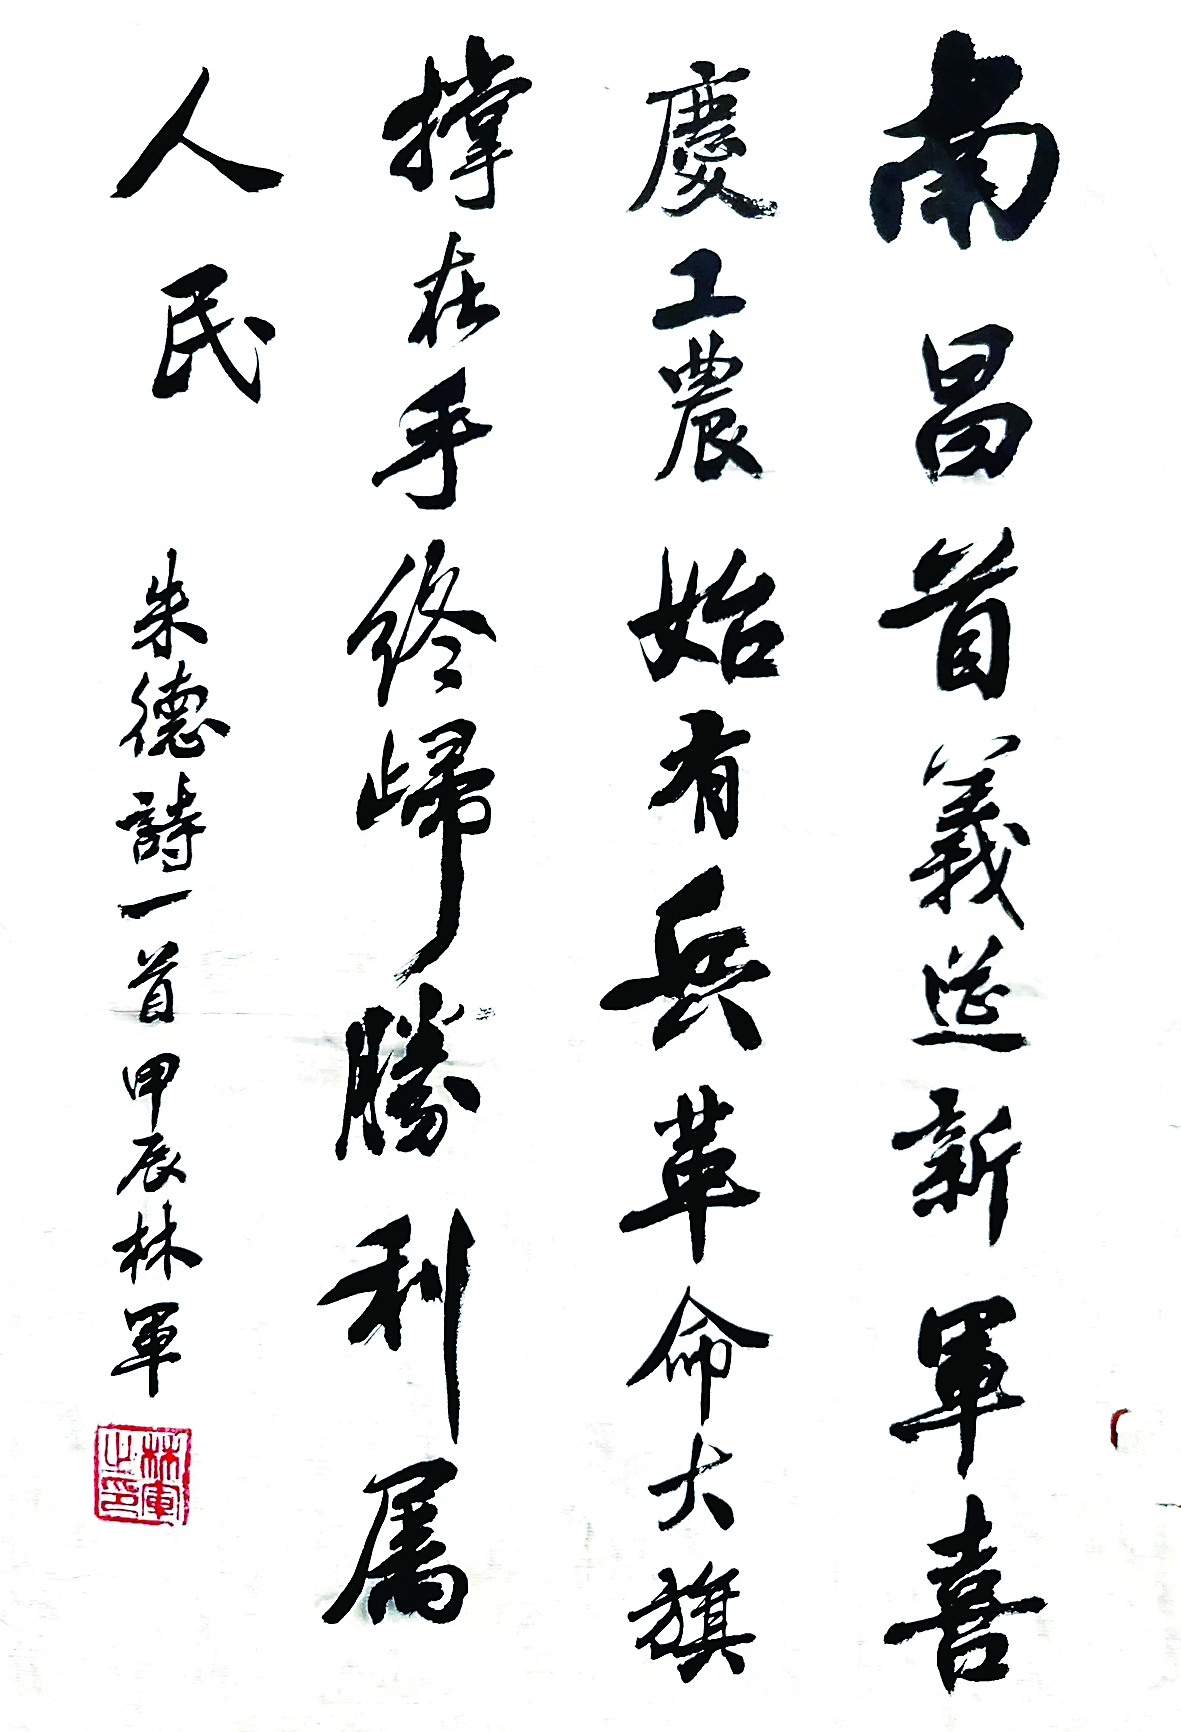 南昌首義誕新軍喜
慶工農始有兵革命大旗
撑在手終歸勝利属
人民
朱德詩一首甲辰林軍
林軍之印